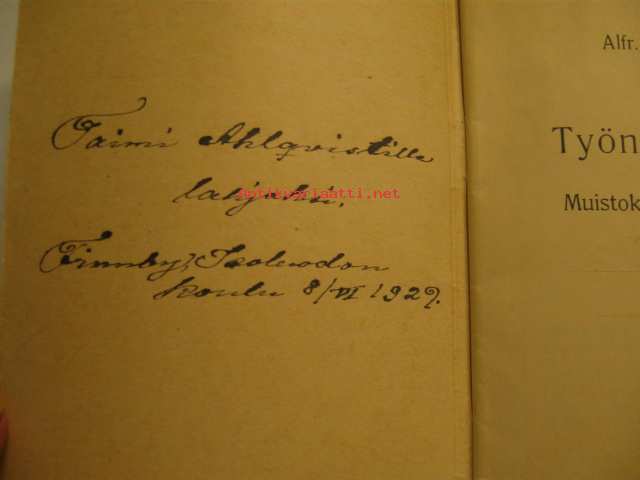 Taimi Ahlqvistille
lahjaksi.
Finnby, Isoluodon
koulu 8/VI 1929.
antikvariaatti.net
Alfr.
Työn
Muistok